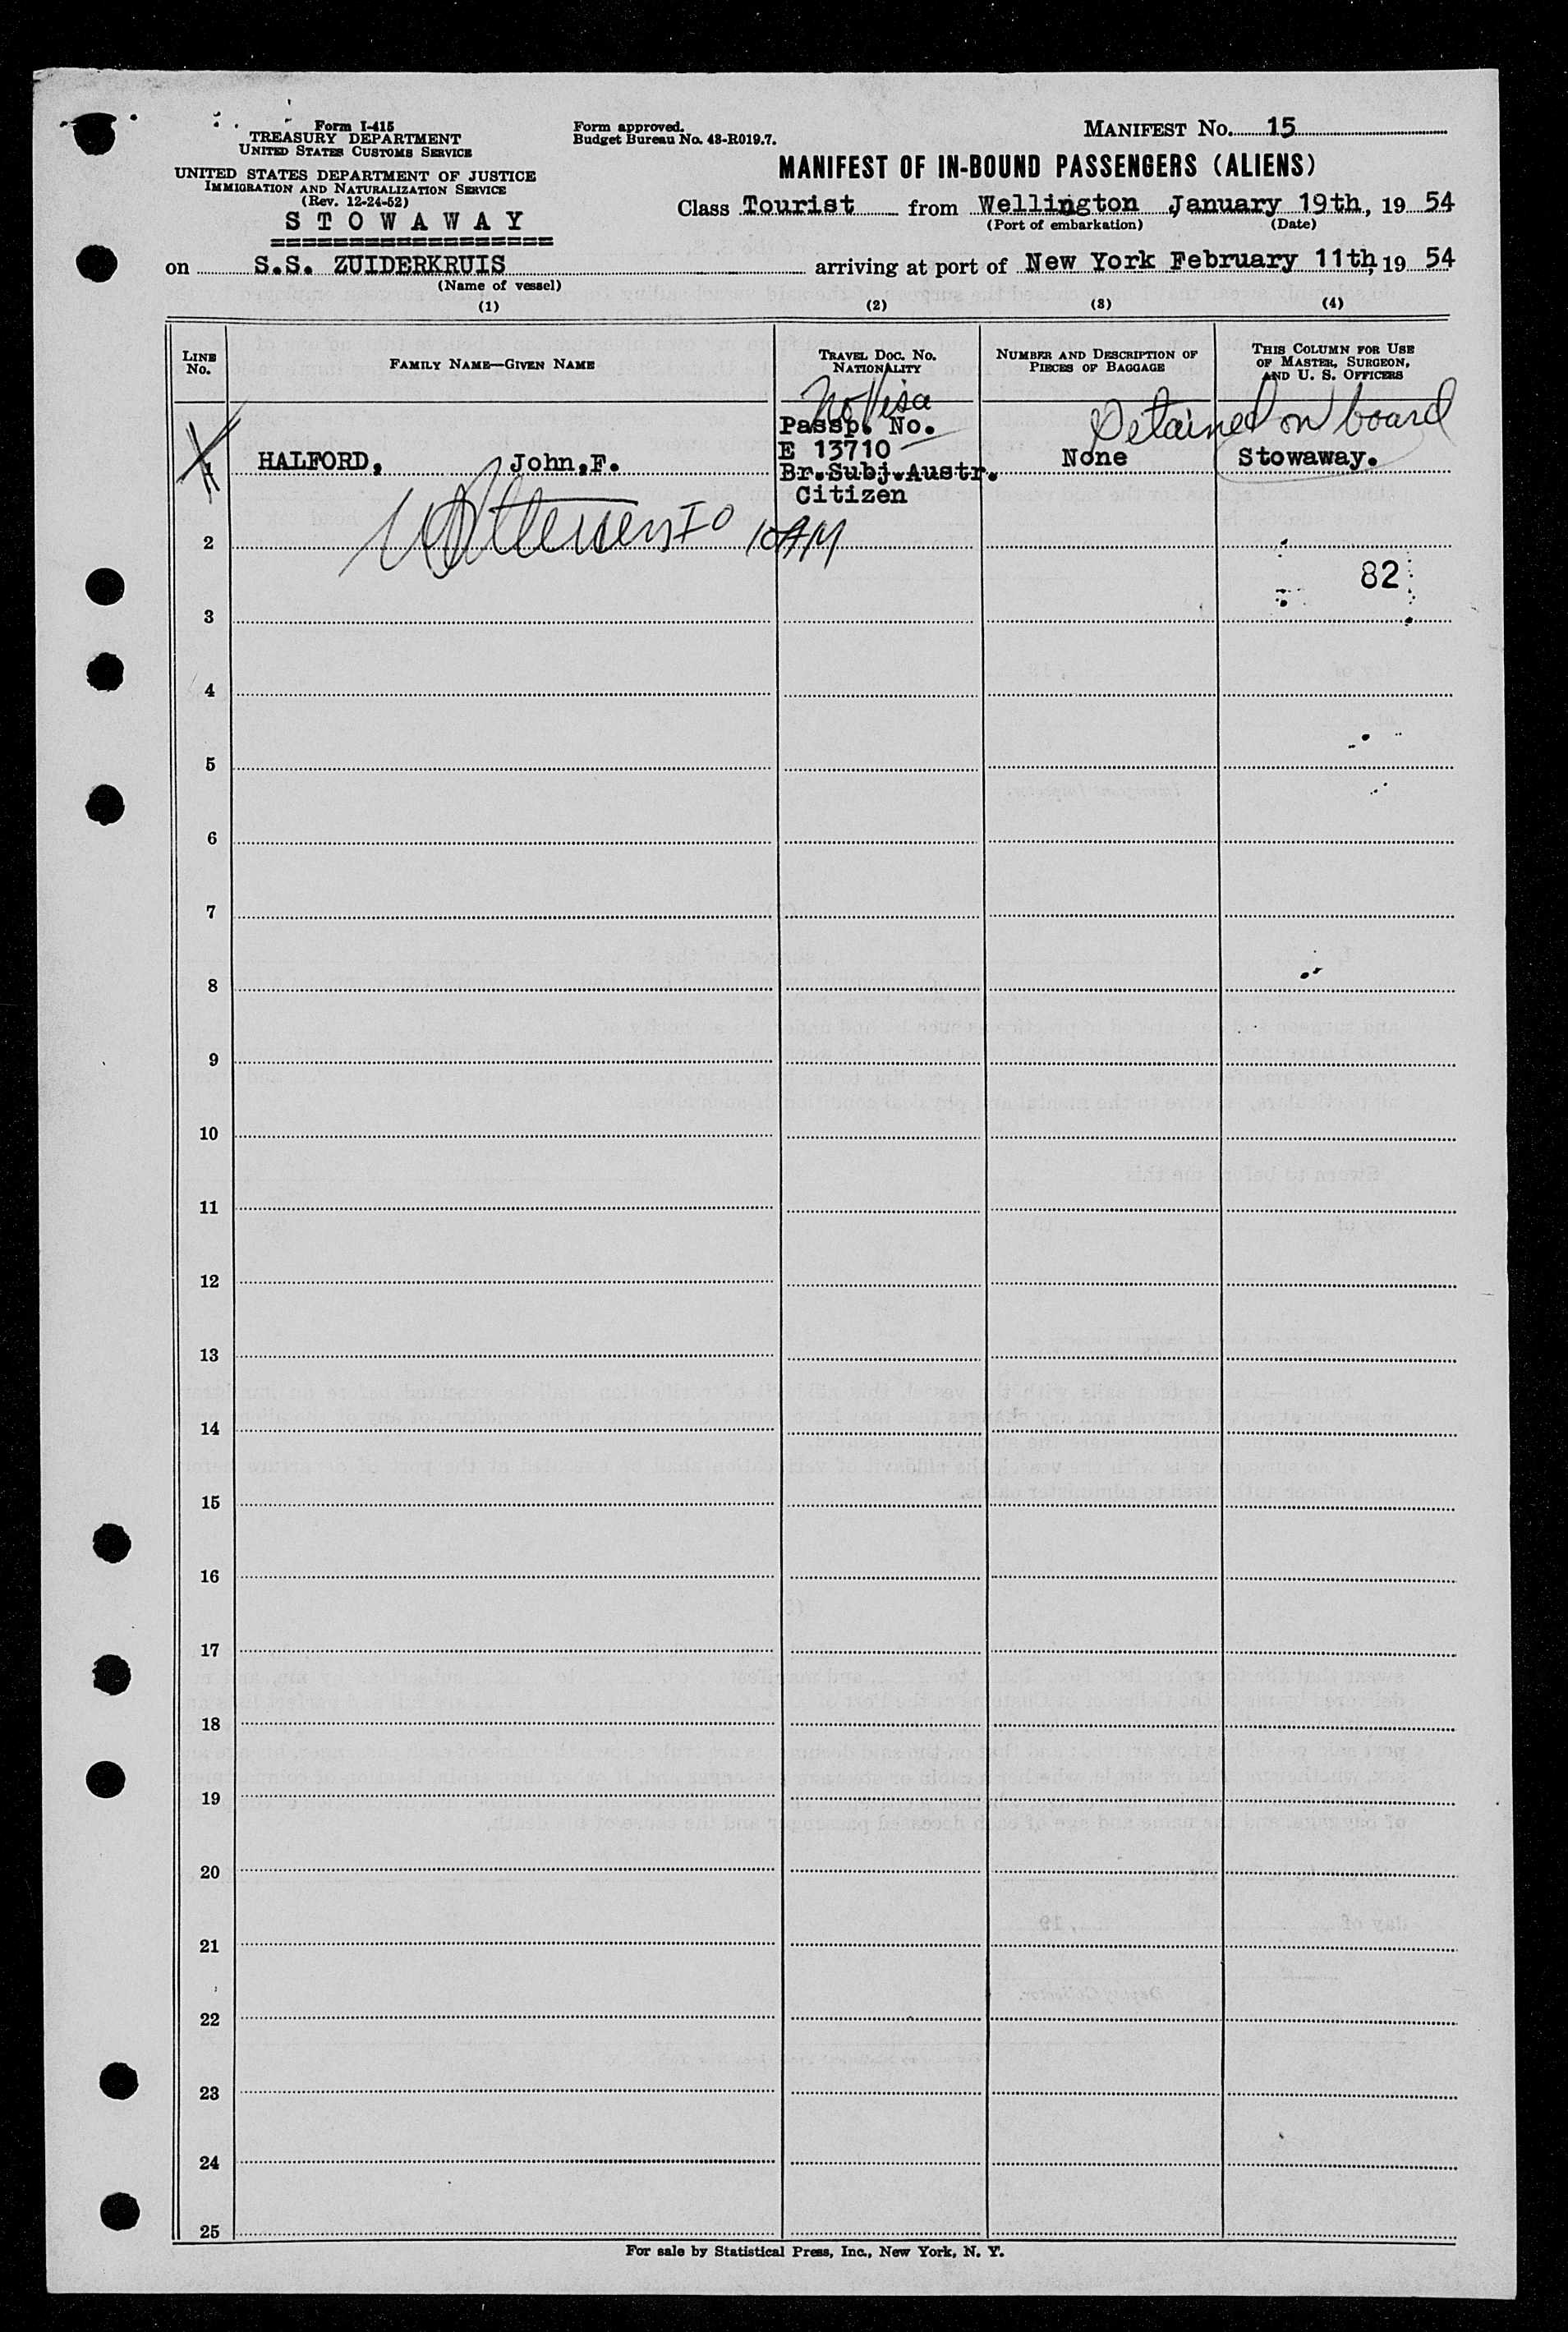 Form I-415
TREASURY DEPARTMENT
UNITED STATES CUSTOMS SERVICE
UNITED STATES DEPARTMENT OF JUSTICE
IMMIGRATION AND NATURALIZATION SERVICE
(Rev. 12-24-52)
STOWAWAY
==================
Form approved.
Budget Bureau No. 43-R019.7.
MANIFEST No. 15
MANIFEST OF IN-BOUND PASSENGERS (ALIENS)
Class Tourist from Wellington January 19th, 19 54
(Port of embarkation) (Date)
on S.S. ZUIDERKRUIS arriving at port of New York February 11th, 19 54
(Name of vessel)
(1) (2) (3) (4)
LINE No.
FAMILY NAME—GIVEN NAME
TRAVEL DOC. NO. NATIONALITY
NUMBER AND DESCRIPTION OF PIECES OF BAGGAGE
THIS COLUMN FOR USE OF MASTER, SURGEON, AND U. S. OFFICERS
No Visa
Detained on board
Passp. No.
E 13710
1 HALFORD, John,F. Br.Subj.Austr. None Stowaway.
Citizen
IO 10AM
2
82
3
4
5
6
7
8
9
10
11
12
13
14
15
16
17
18
19
20
21
22
23
24
25
For sale by Statistical Press, Inc., New York, N. Y.